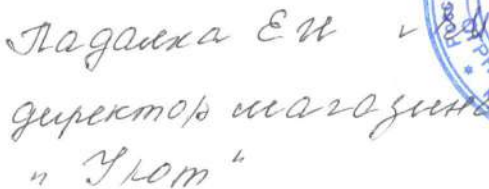 Падалка ЕН
директор магазина
"Уют"